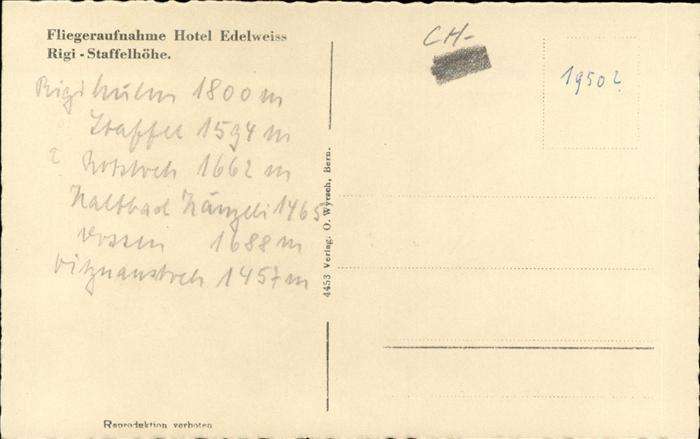 Fliegeraufnahme Hotel Edelweiss
Rigi - Staffelhöhe.
CH-
1950?
Rigikulm 1800 m
Staffel 1594 m
Rotstock 1662 m
Kaltbad Känzeli 1465
1688 m
Vitznaustock 1457 m
4453 Verlag. O. Wyrsch, Bern.
Reproduktion verboten